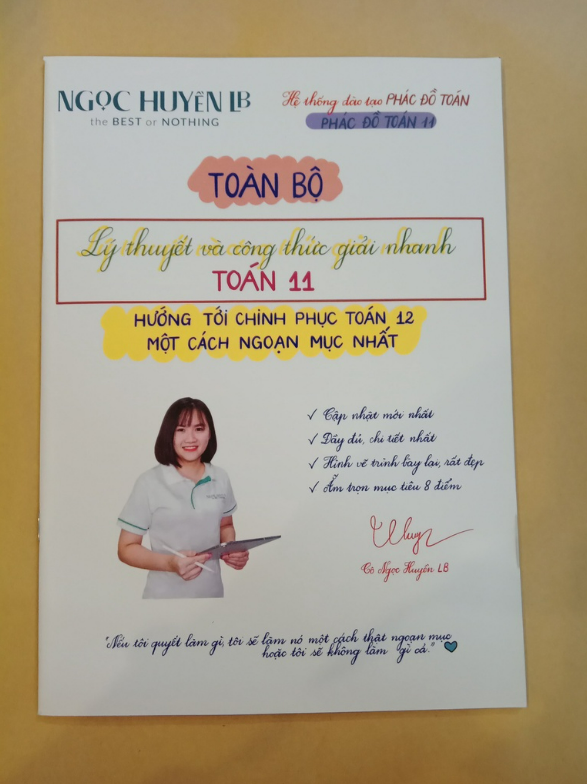 NGỌC HUYỀN LB
the BEST or NOTHING
Hệ thống đào tạo PHÁC ĐỒ TOÁN
PHÁC ĐỒ TOÁN 11
TOÀN BỘ
Lý thuyết và công thức giải nhanh
TOÁN 11
HƯỚNG TỚI CHINH PHỤC TOÁN 12
MỘT CÁCH NGOẠN MỤC NHẤT
✓ Cập nhật mới nhất
✓ Đầy đủ, chi tiết nhất
✓ Hình vẽ trình bày lại, rất đẹp
✓ Ẵm trọn mục tiêu 8 điểm
Cô Ngọc Huyền LB
"Nếu tôi quyết làm gì, tôi sẽ làm nó một cách thật ngoạn mục
hoặc tôi sẽ không làm gì cả."